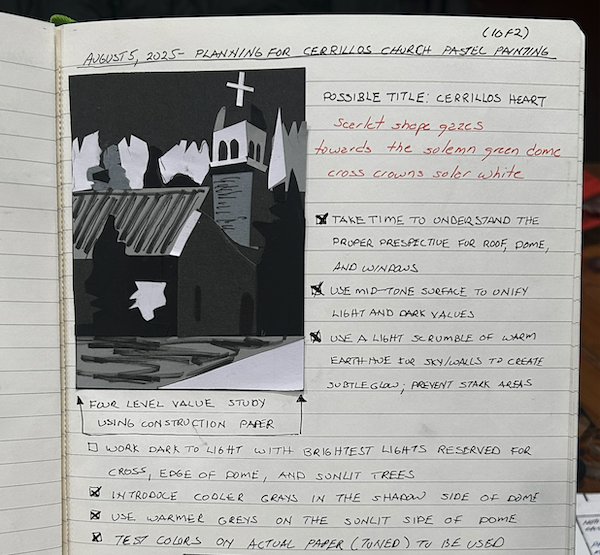 (1 OF 2)
AUGUST 5, 2025 - PLANNING FOR CERRILLOS CHURCH PASTEL PAINTING
POSSIBLE TITLE: CERRILLOS HEART
scarlet shape gazes
towards the solemn green dome
cross crowns solar white
TAKE TIME TO UNDERSTAND THE
PROPER PRESPECTIVE FOR ROOF, DOME,
AND WINDOWS
USE MID-TONE SURFACE TO UNIFY
LIGHT AND DARK VALUES
USE A LIGHT SCRUMBLE OF WARM
EARTH HUE FOR SKY/WALLS TO CREATE
SUBTLE GLOW; PREVENT STARK AREAS
FOUR LEVEL VALUE STUDY
USING CONSTRUCTION PAPER
WORK DARK TO LIGHT WITH BRIGHTEST LIGHTS RESERVED FOR
CROSS, EDGE OF DOME, AND SUNLIT TREES
INTRODUCE COOLER GRAYS IN THE SHADOW SIDE OF DOME
USE WARMER GREYS ON THE SUNLIT SIDE OF DOME
TEST COLORS ON ACTUAL PAPER (TONED) TO BE USED